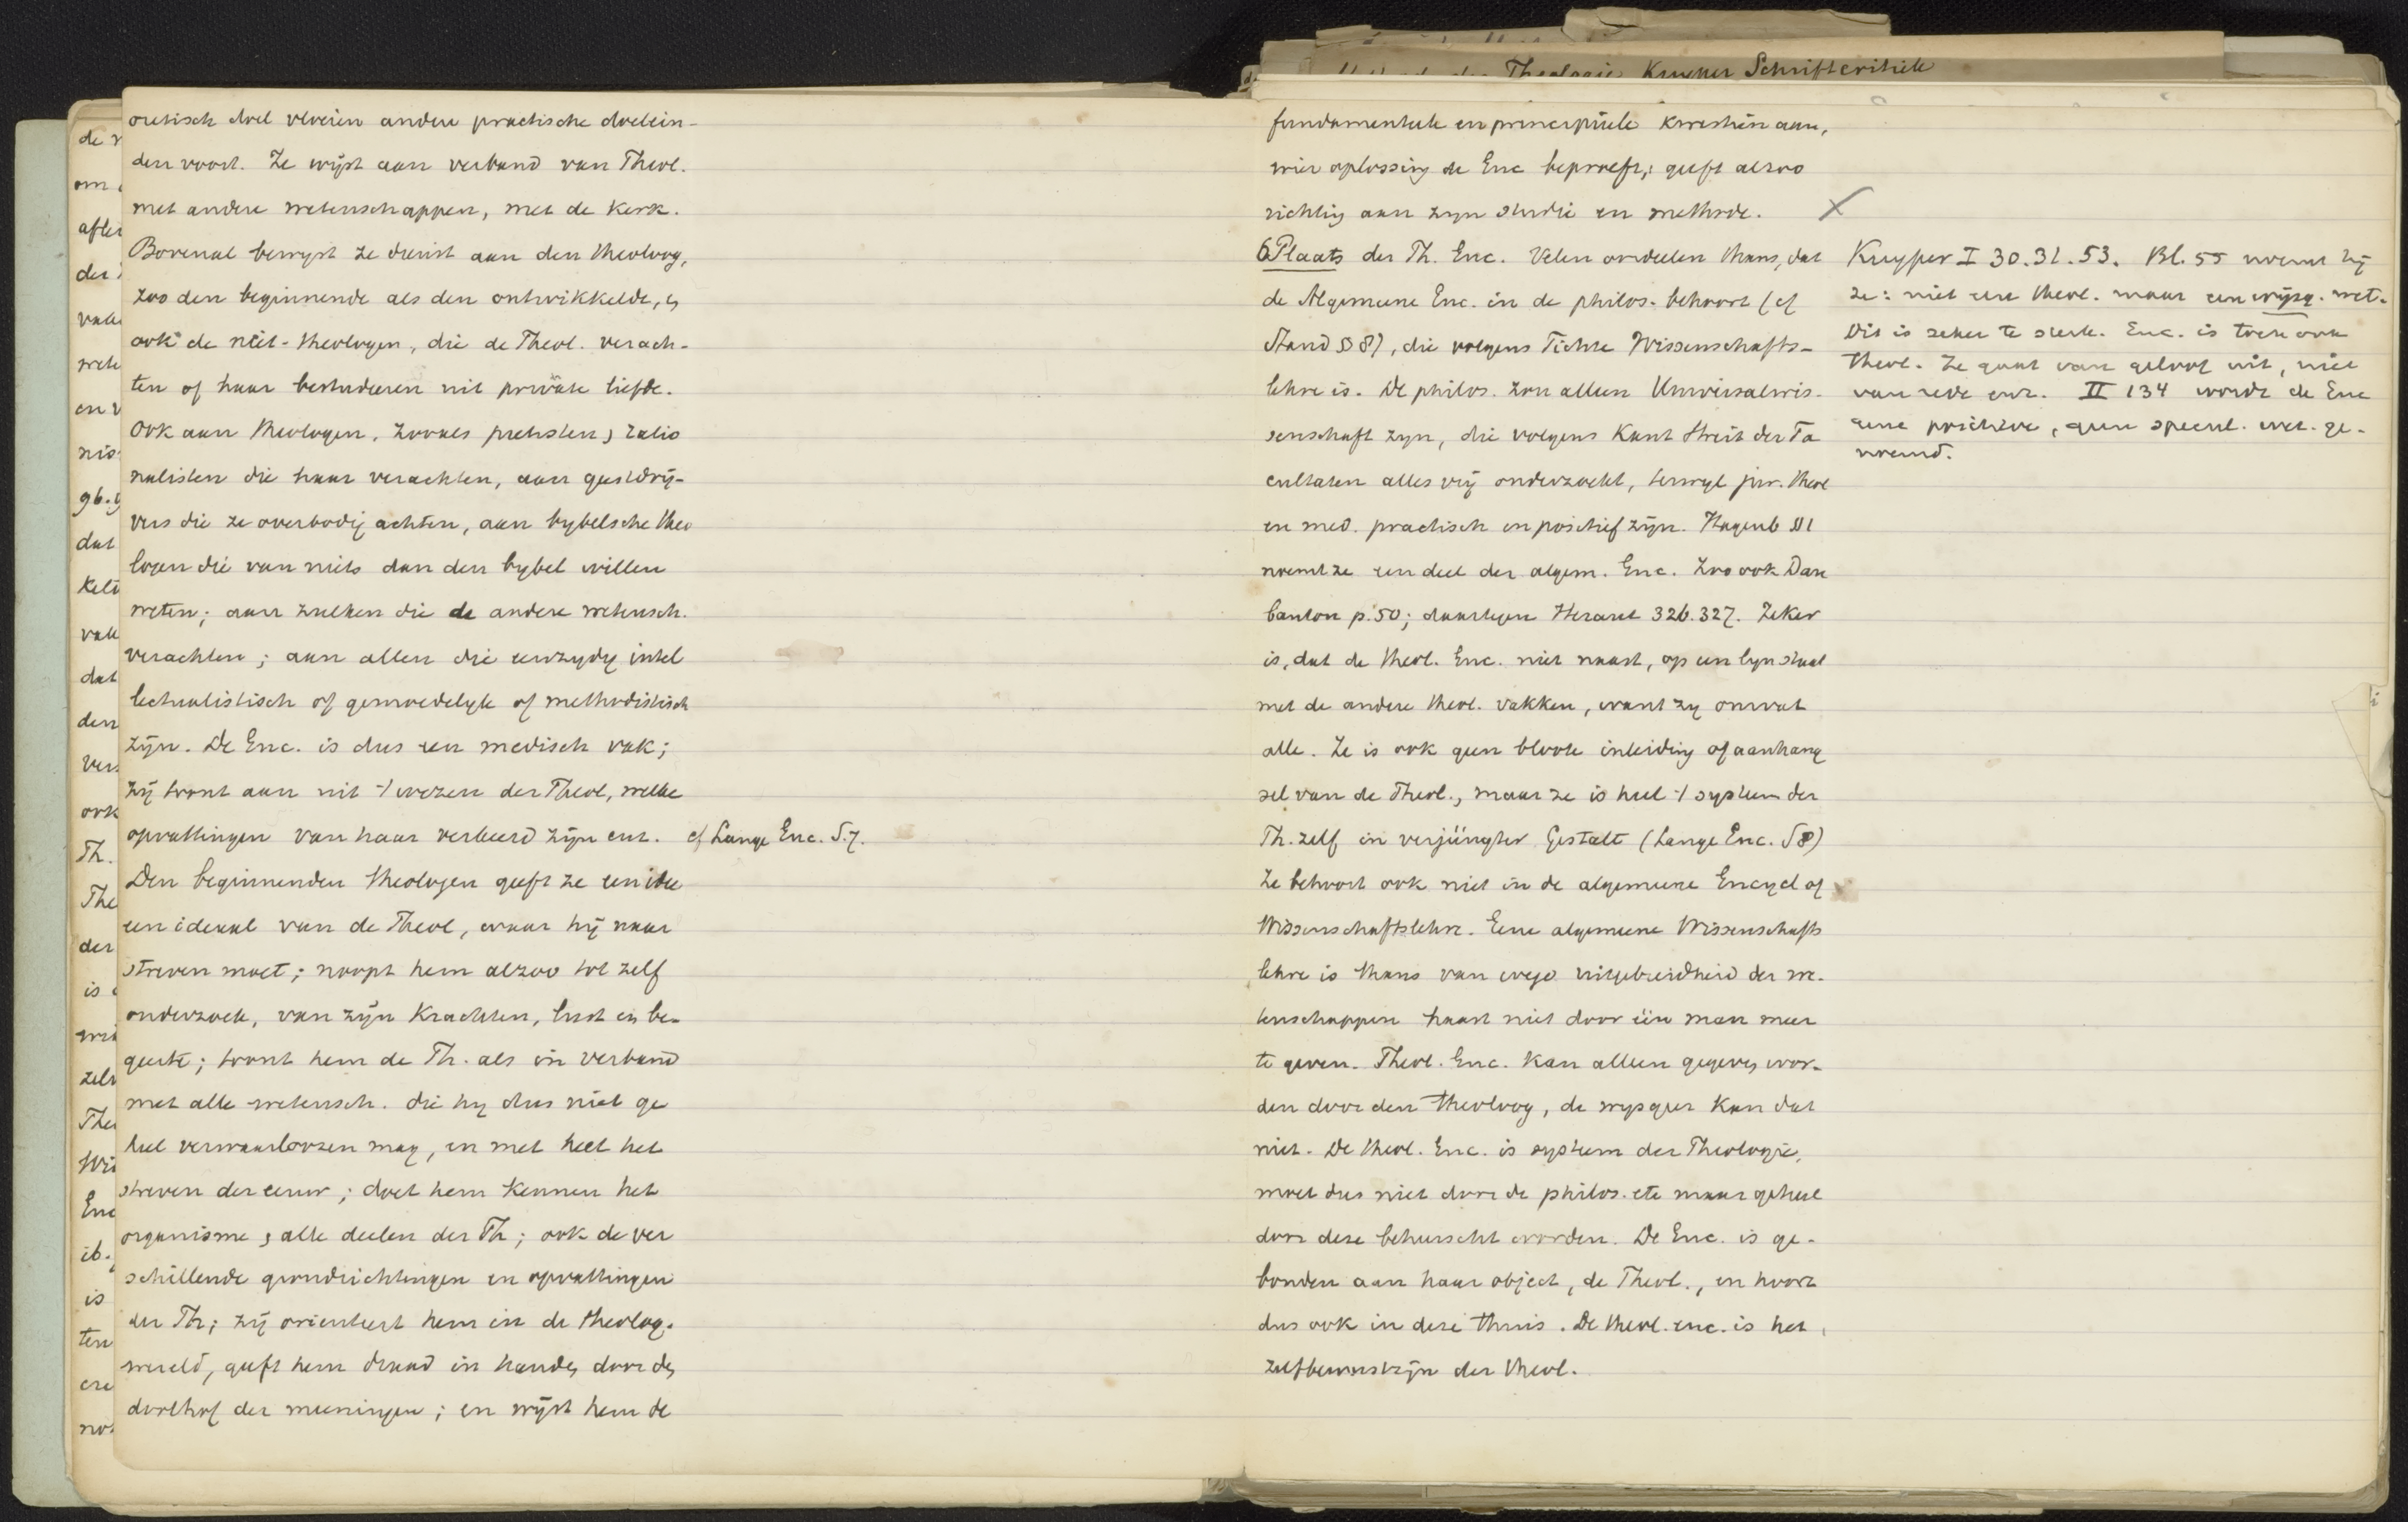 oretisch doel vloeien andere practische doelein-
den voort. Ze wijst aan verband van Theol.
met andere wetenschappen, met de Kerk.
Bovenal bewyst ze dienst aan den theoloog,
zoo den beginnende als den ontwikkelde, en
ook de niet-theologen, die de Theol. verach-
ten of haar bestudeeren uit private liefde.
Ook aan theologen, zooals pietisten, ratio
nalisten die haar verachten, aan geestdrij-
vers die ze overbodig achten, aan bybelsche theo
logen die van niets dan den bybel willen
weten; aan zulken die de andere wetensch.
verachten; aan allen die eenzydig intel
lectualistisch of gemoedelyk of methodistisch
zijn. De Enc. is dus een medisch vak;
zij toont aan uit 't wezen der Theol, welke
opvattingen van haar verkeerd zijn enz. cf Lange Enc. S. 7.
Den beginnenden theologen geeft ze een idee
een ideaal van de Theol, waar hij naar
streven moet; noopt hem alzoo tot zelf
onderzoek, van zijn Krachten, lust en be-
geerte; toont hem de Th. als in verband
met alle wetensch. die hy dus niet ge
heel verwaarloozen mag, en met heel het
streven der eeuw; doet hem kennen het
organisme, alle deelen der Th; ook de ver
schillende grondrichtingen en opvattingen
der Th; zij orienteert hem in de theolog.
wereld, geeft hem draad in handen door den
doolhof der meeningen; en wijst hem de
Theologie Kuenen Schriftcritiek
fundamenteele en principieele kwestiën aan,
wier oplossing de Enc beproeft; geeft alzoo
richting aan zyn studie en methode.
6 Plaats der Th. Enc. Velen oordeelen thans, dat
de Algemeene Enc. in de philos. behoort (cf
Stand S 8), die volgens Fichte Wissenschafts-
lehre is. De philos. zou alleen Universalwis-
senschaft zyn, die volgens Kant Streit der Fa
cultaten alles vrij onderzoekt, terwyl jur. theol
en med. practisch en positief zijn. Hagenb S 1
noemt ze een deel der algem. Enc. Zoo ook Dau
banton p. 50; daartegen Heraut 326. 327. Zeker
is, dat de theol. Enc. niet naast, op een lyn staat
met de andere theol. vakken, want zy omvat
alle. Ze is ook geen bloote inleiding of aanhang
sel van de Theol., maar ze is heel 't systeem der
Th. zelf in verjüngter Gestalt (Lange Enc. S 8)
Ze behoort ook niet in de algemeene Encycl of
Wissenschaftslehre. Eene algemeene Wissenschafts
lehre is thans van wege uitgebreidheid der we-
tenschappen haast niet door één man meer
te geven. Theol. Enc. kan alleen gegeven wor-
den door den theoloog, de wysgeer kan dat
niet. De theol. Enc. is systeem der Theologie,
moet dus niet door de philos. etc maar geheel
door deze beheerscht worden. De Enc. is ge-
bonden aan haar object, de Theol., en hoort
dus ook in deze thuis. De theol. enc. is het
zelfbewustzijn der theol.
Kuyper I 30. 31. 53. Bl. 55 noemt hij
ze: niet eene theol. maar een wijsg. wet.
Dit is zeker te sterk. Enc. is toch ook
theol. Ze gaat van geloof uit, niet
van rede enz. II 134 wordt de Enc
eene positieve, geen specul. wet. ge-
noemd.